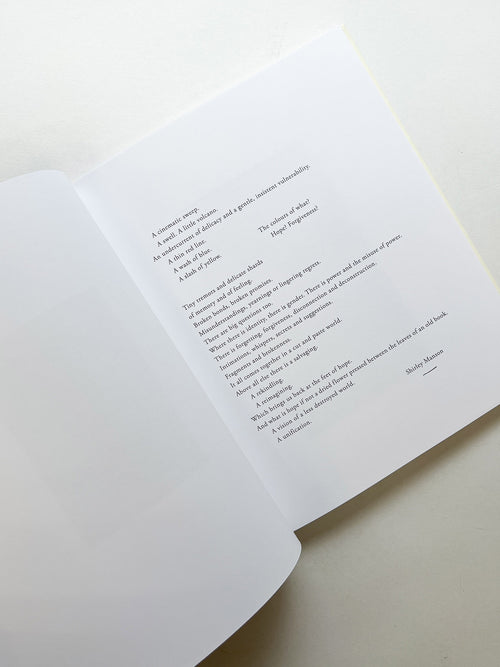 A cinematic sweep.
A swell. A little volcano.
An undercurrent of delicacy and a gentle, insistent vulnerability.
A thin red line.
A wash of blue.
A slash of yellow.
The colours of what?
Hope? Forgiveness?
Tiny tremors and delicate shards
of memory and of feeling.
Broken bonds, broken promises.
Misunderstandings, yearnings or lingering regrets.
There are big questions too.
Where there is identity, there is gender. There is power and the misuse of power.
There is forgetting, forgiveness, disconnection and deconstruction.
Intimations, whispers, secrets and suggestions.
Fragments and brokenness.
It all comes together in a cut and paste world.
Above all else there is a salvaging.
A rekindling.
A reimagining.
Which brings us back at the feet of hope.
And what is hope if not a dried flower pressed between the leaves of an old book.
A vision of a less destroyed world.
A unification.
Shirley Marsson